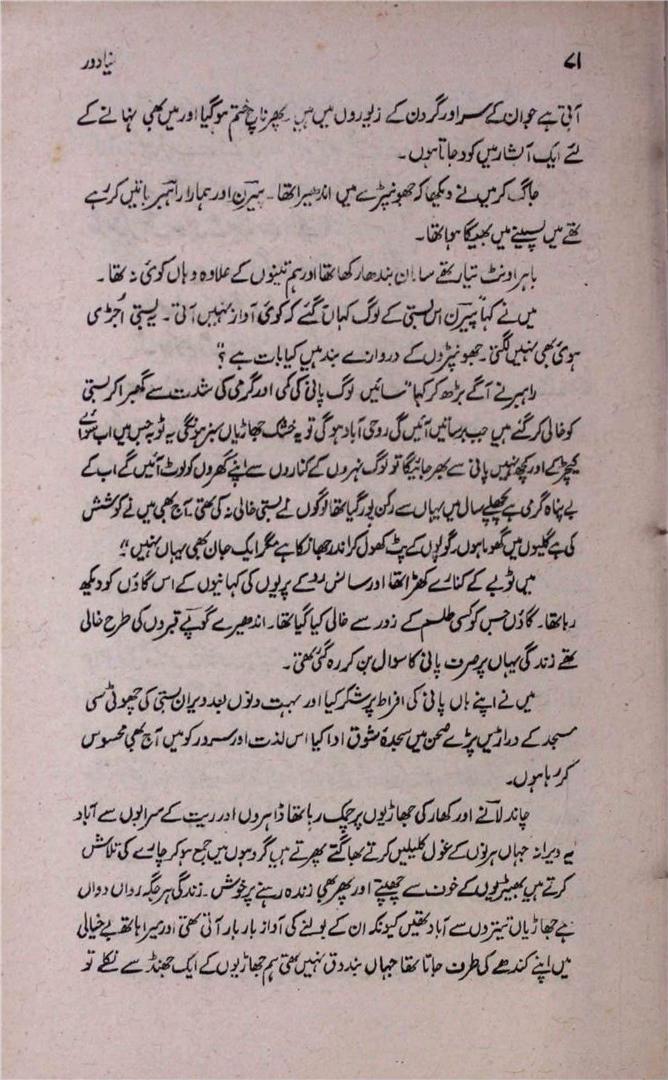 نیا دور
۷۱
آتی ہے جو ان کے سر اور گردن کے زیوروں میں ہیں۔ پھر ناچ ختم ہو گیا اور میں بھی نہانے کے
لئے ایک آبشار میں کود جاتا ہوں۔
جاگ کر میں نے دیکھا کہ جھونپڑے میں اندھیرا تھا۔ پیرن اور ہمارا راہبر باتیں کر رہے
تھے میں پسینے میں بھیگا ہوا تھا۔
باہر اونٹ تیار تھے سامان بندھا رکھا تھا اور ہم تینوں کے علاوہ وہاں کوئی نہ تھا۔
میں نے کہا "پیرن اس بستی کے لوگ کہاں گئے کہ کوئی آواز نہیں آتی۔ یہ بستی اُجڑی
ہوئی بھی نہیں لگتی۔ جھونپڑوں کے دروازے بند ہیں کیا بات ہے ؟"
راہبر نے آگے بڑھ کر کہا "سائیں لوگ پانی کی کمی اور گرمی کی شدت سے گھبرا کر بستی
کو خالی کر گئے ہیں جب برساتیں آئیں گی روحی آباد ہو گی تو یہ خشک جھاڑیاں سبز ہونگی یہ ٹوبہ جس میں اب سوائے
کیچڑ کے اور کچھ نہیں پانی سے بھر جائیگا تو لوگ نہروں کے کناروں سے اپنے گھروں کو لوٹ آئیں گے اب کے
بے پناہ گرمی ہے پچھلے سال میں یہاں سے رکن پور گیا تھا لوگوں نے بستی خالی نہ کی تھی۔ آج بھی میں نے کوشش
کی ہے گلیوں میں گھوما ہوں۔ گوپوں کے پٹ کھول کر اندر جھانکا ہے مگر ایک جان بھی یہاں نہیں"
میں ٹوبے کے کنارے کھڑا تھا اور سانس روکے پریوں کی کہانیوں کے اس گاؤں کو دیکھ
رہا تھا۔ گاؤں جس کو کسی طلسم کے زور سے خالی کیا گیا تھا۔ اندھیرے گوپے قبروں کی طرح خالی
تھے زندگی یہاں پر صرف پانی کا سوال بن کر رہ گئی تھی۔
میں نے اپنے ہاں پانی کی افراط پر شکر کیا اور بہت دنوں بعد ویران بستی کی چھوٹی سی
مسجد کے دراڑیں پڑے صحن میں سجدۂ شوق ادا کیا اس لذت اور سرور کو میں آج بھی محسوس
کر رہا ہوں۔
چاند لانے اور کھار کی جھاڑیوں پر چمک رہا تھا ڈاہروں اور ریت کے سرابوں سے آباد
یہ ویرانہ جہاں ہرنوں کے غول کلیلیں کرتے بھاگتے پھرتے ہیں گروہوں میں جمع ہو کر چارے کی تلاش
کرتے ہیں بھیڑیوں کے خوف سے چھپتے اور پھر بھی زندہ رہنے پر خوش۔ زندگی ہر جگہ رواں دواں
ہے جھاڑیاں تیتروں سے آباد تھیں کیونکہ ان کے بولنے کی آواز بار بار آتی تھی اور میرا ہاتھ بے خیالی
میں اپنے کندھے کی طرف جاتا تھا جہاں بندوق نہیں تھی ہم جھاڑیوں کے ایک جھنڈ سے نکلے تو